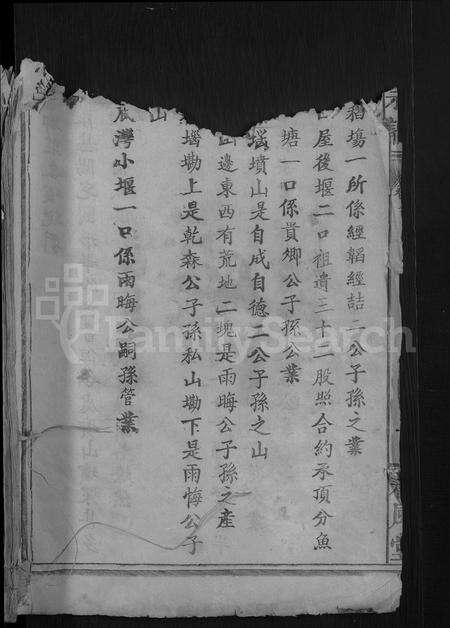 稻塲一所係經韜經詰二公子孫之業
屋後堰二口祖遺三十二股照合約承頂分魚
塘一口係貰卿公子孫公業
墳山是自成自德二公子孫之山
山邊東西有荒地二塊是雨晦公子孫之產
墈上是乾森公子孫私山墈下是雨悔公子
山
底灣小堰一口係雨晦公嗣孫管業
FamilySearch